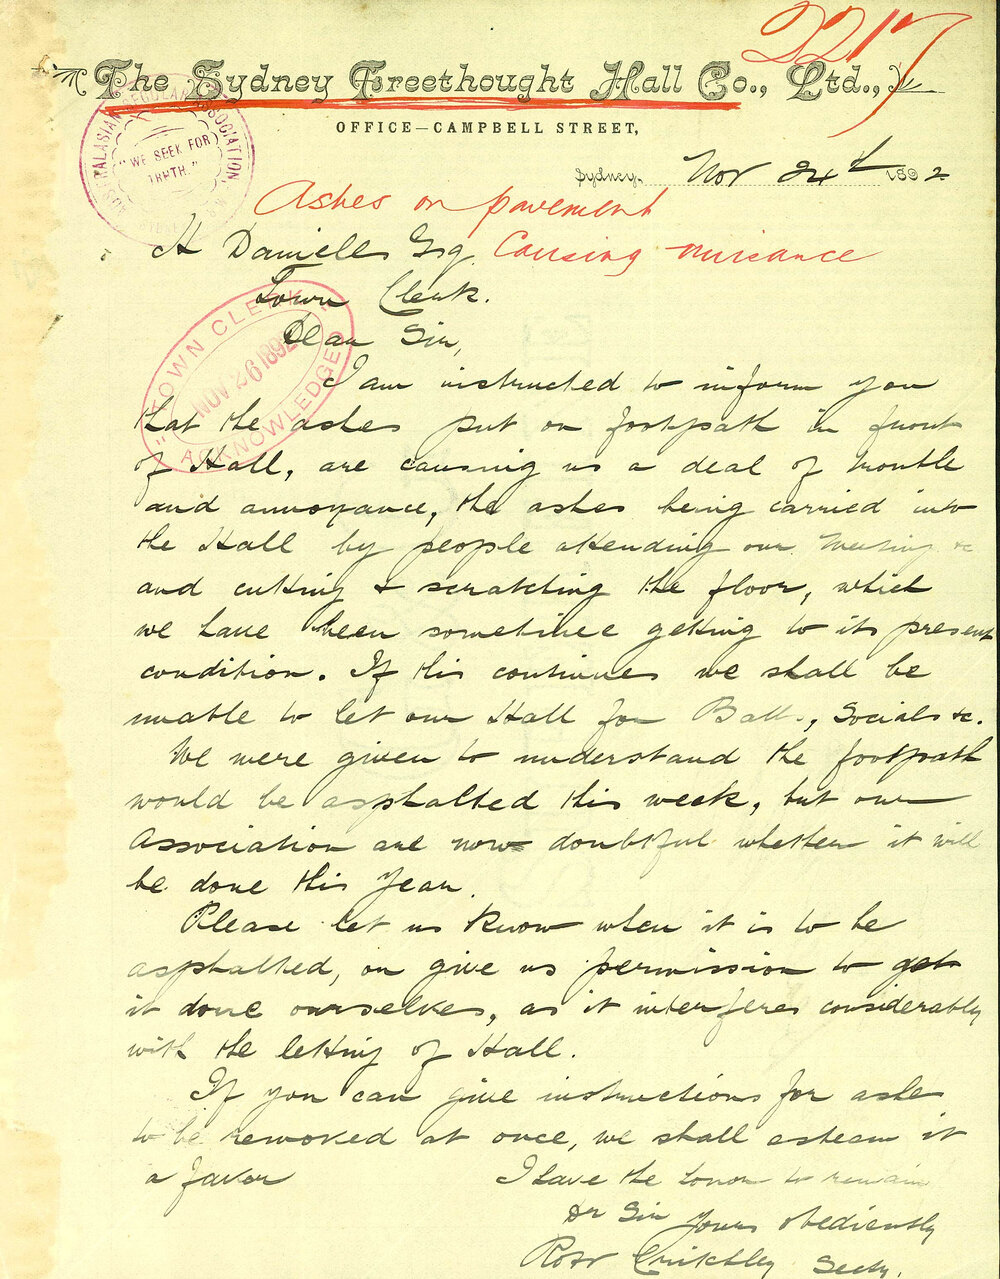 2217
The Sydney Freethought Hall Co., Ltd.,
OFFICE—CAMPBELL STREET,
AUSTRALASIAN SECULAR ASSOCIATION,
"WE SEEK FOR
TRUTH."
Sydney, Nov 24th 1892
Ashes on pavement
Causing nuisance
H Daniels Esq
Town Clerk.
Dear Sir,
TOWN CLERK
NOV 26 1892
ACKNOWLEDGED
I am instructed to inform you
that the ashes put on footpath in front
of Hall, are causing us a deal of trouble
and annoyance, the ashes being carried into
the Hall by people attending our Meeting &c
and cutting & scratching the floor, which
we have been sometime getting to its present
condition. If this continues we shall be
unable to let our Hall for Balls, Socials &c.
We were given to understand the footpath
would be asphalted this week, but our
Association are now doubtful whether it will
be done this Year.
Please let us know when it is to be
asphalted, or give us permission to get
it done ourselves, as it interferes considerably
with the letting of Hall.
If you can give instructions for ashes
to be removed at once, we shall esteem it
a favor
I have the honor to remain
Dr Sir Yours obediently
Ross Critchley Secty.